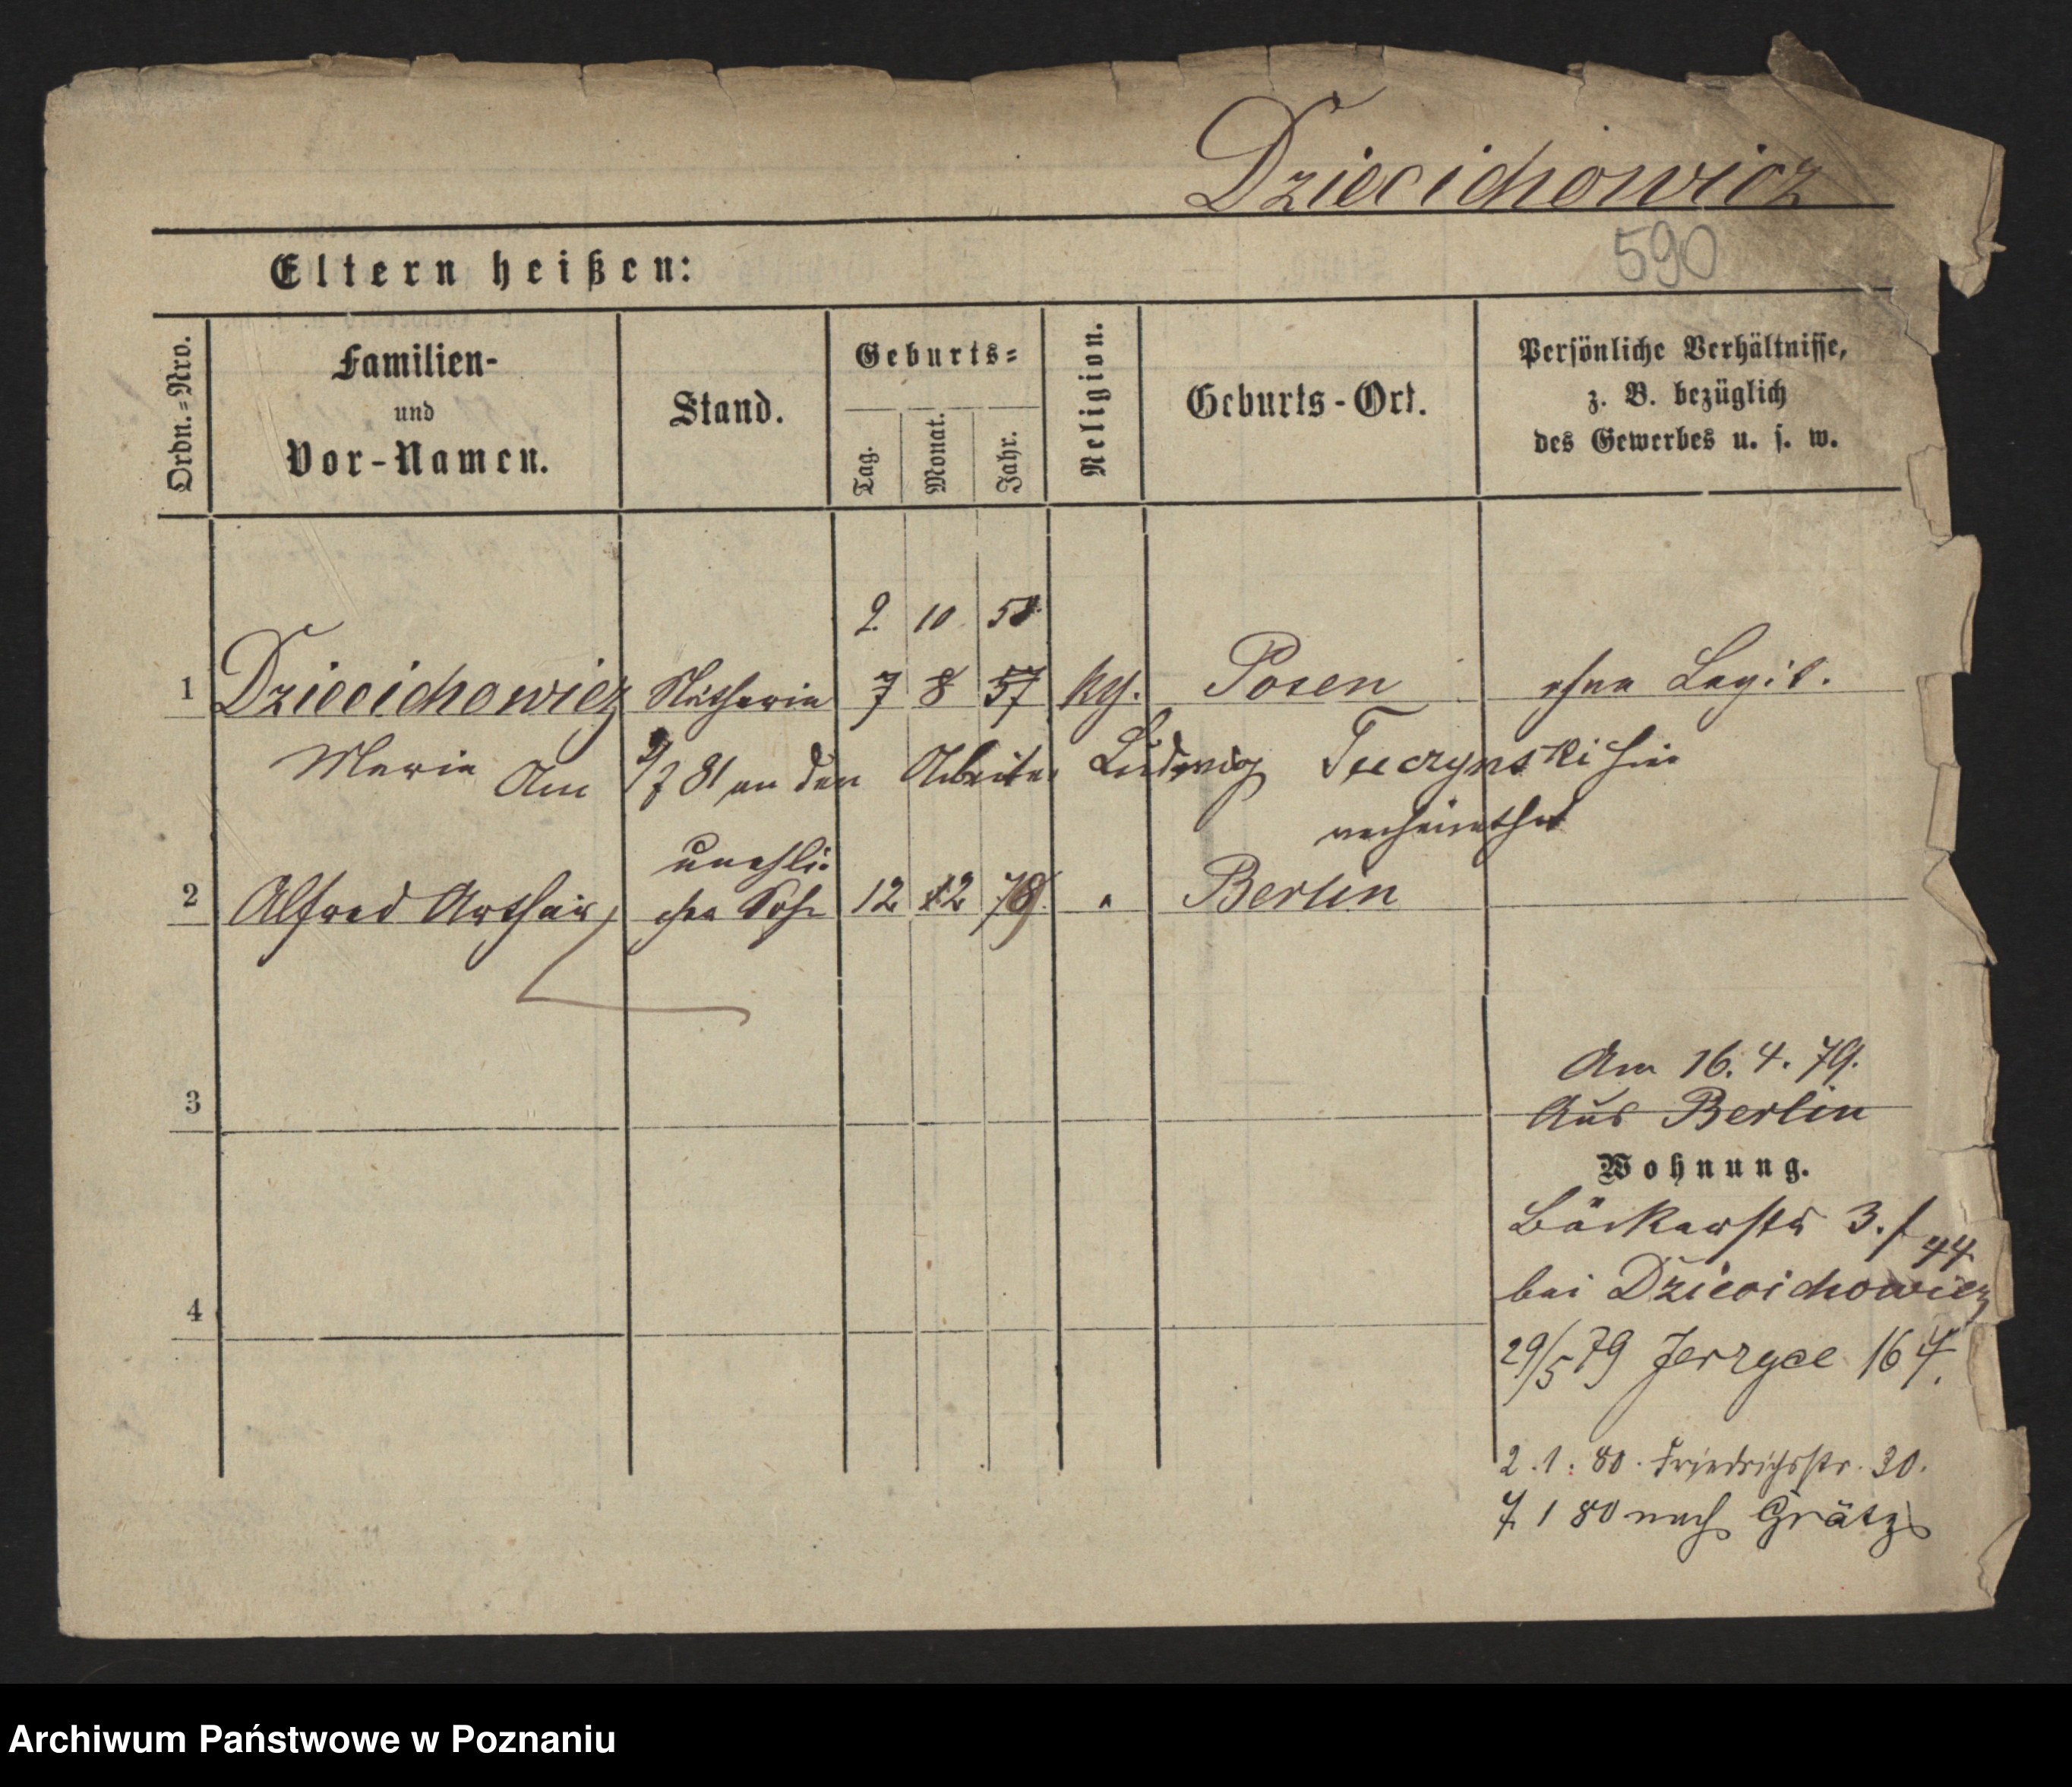 Dziecichowicz
590
Eltern heißen:
Ordn.=Nro.
Familien-
und
Vor-Namen.
Stand.
Geburts=
Tag.
Monat.
Jahr.
Religion.
Geburts-Ort.
Persönliche Verhältnisse,
z. B. bezüglich
des Gewerbes u. s. w.
2 10 58
1 Dziecichowicz Nätherin 7 8 57 kg. Posen ohne Legit.
Marie Am 9/7 81 an den Arbeiter Ludwig Tuczynski hier
verheirathet
unehli-
2 Alfred Arthur, cher Sohn 12 12 78 " Berlin
3
Am 16. 4. 79.
Aus Berlin
Wohnung.
Bäckerstr 3. f 44
bei Dziecichowicz
4
29/5 79 Jerzyce 167.
2. 1. 80. Friedrichsstr. 30.
7. 1 80 nach Grätz
Archiwum Państwowe w Poznaniu